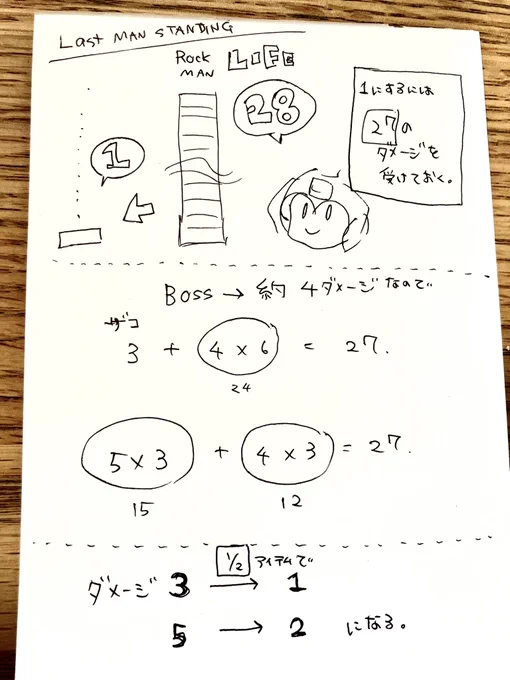 Last MAN STANDING
Rock MAN LIFE
28
1
1にするには
27の
ダメージを
受けておく。
Boss → 約 4ダメージなので
ザコ
3 + 4 × 6 = 27.
24
5 × 3 + 4 × 3 = 27.
15 12
1/2 アイテムで
ダメージ 3 → 1
5 → 2 になる。